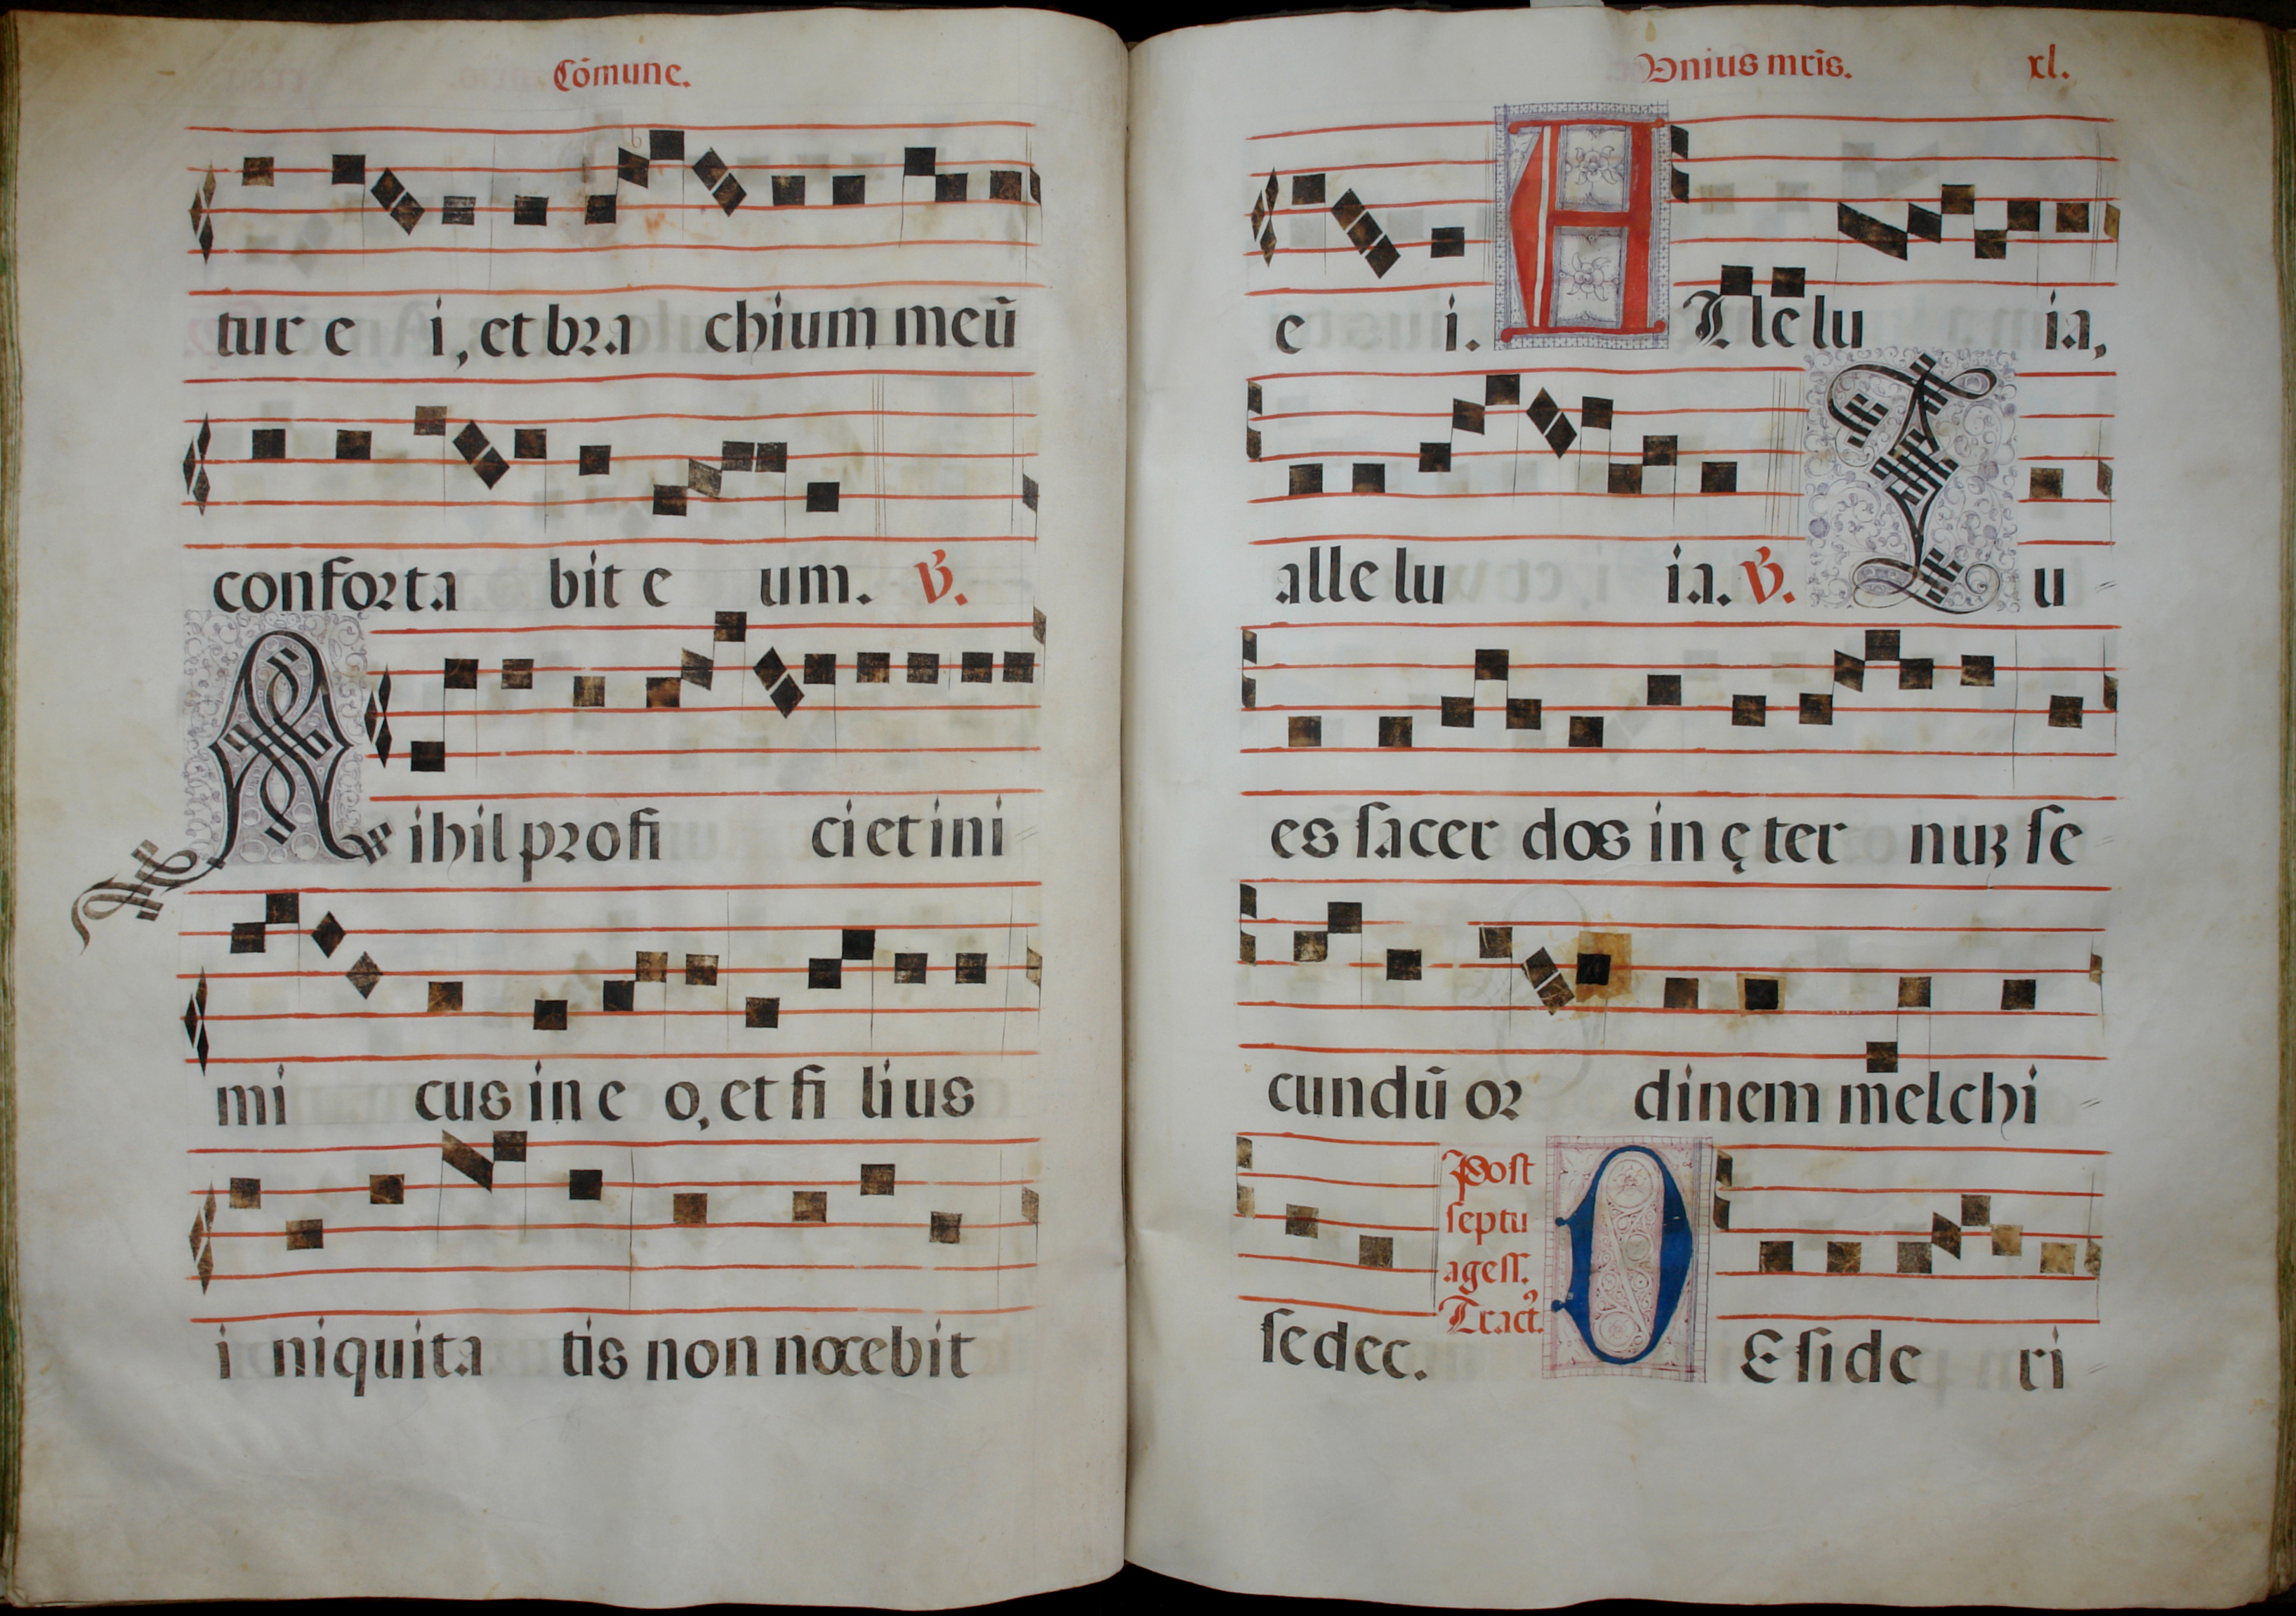 Cōmune.
tur e i, et bra chium meū
conforta bit e um. ℣.
Nihil profi ci et ini
mi cus in e o, et fi lius
i niquita tis non nocebit
Vnius mris. xl.
e i. A Lle lu ia,
alle lu ia. ℣. Tu
es sacer dos in ę ter nuʒ se
cundū or dinem melchi
sedec. Post septu agess. Tractꝰ. D Eside ri